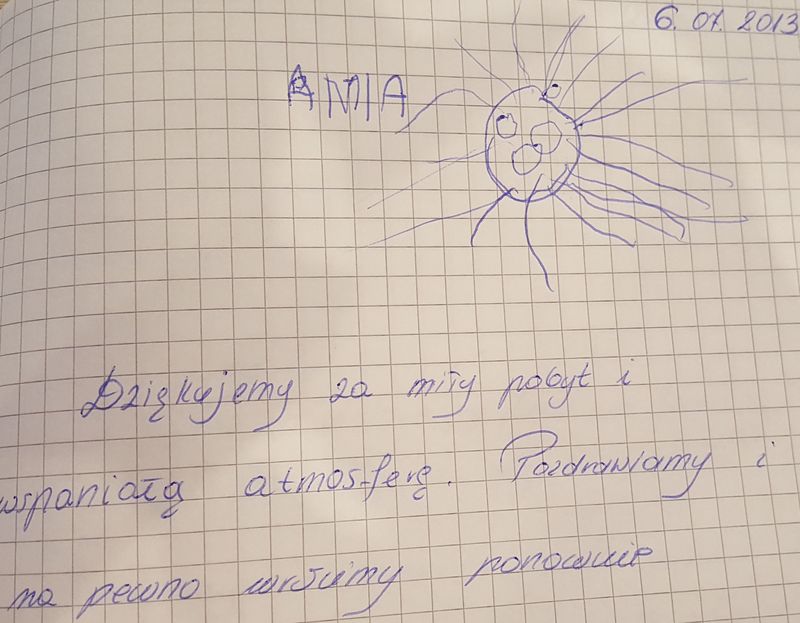 6. 07. 2013
ANIA
Dziękujemy za miły pobyt i
wspaniałą atmosferę. Pozdrawiamy i
na pewno wrócimy ponownie